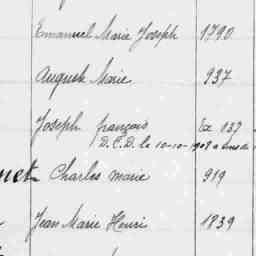 Emmanuel Marie Joseph 1790
Auguste Marie 937
Joseph françois Ex 137
D.C.D. le 10-10-1908 a
Charles marie 919
Jean Marie Henri 1839